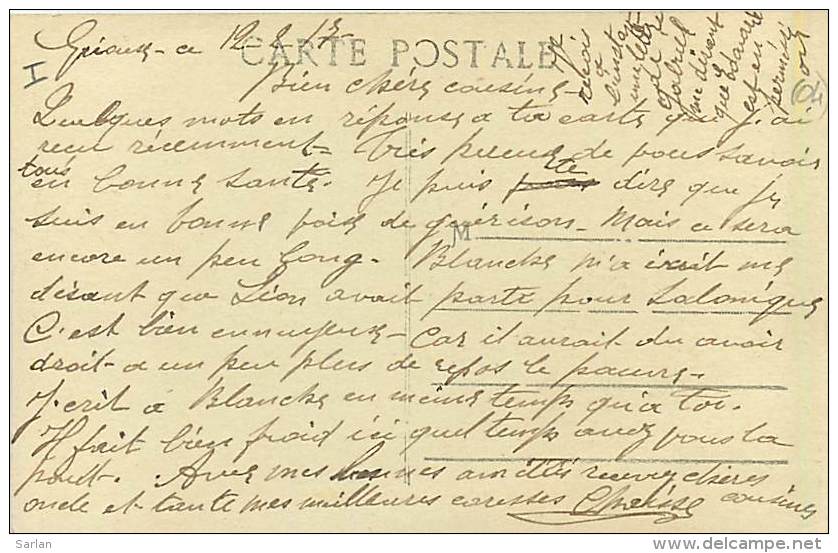 CARTE POSTALE
Bien chère cousine -
Quelques mots en réponse a ta carte que j'ai
reçu récemment - Très heureuse de vous savoir
tous
en bonne santé. Je puis te dire que je
suis en bonne voie de guérison - Mais ce sera
M
encore un peu long - Blanche m'a écrit me
disant que Léon avait parti pour Salonique
C'est bien ennuyeux - Car il aurait du avoir
droit a un peu plus de repos le pauvre -
J'ecrit a Blanche en meme temps qu'a toi.
Il fait bien froid ici quel temps avez vous la
haut. Avec mes bonnes amitiés recevez chères cousines
oncle et tante mes meilleures caresses
Je
reçois
a
l'instant
une lettre
de
Gabriel
me disant
que
est en
permission
(04)
I
www.delcampe.net